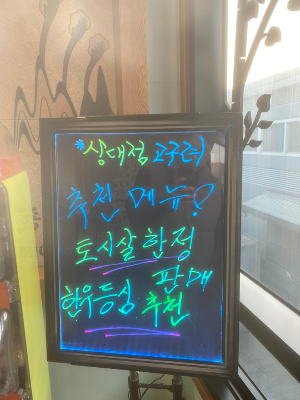 *상대점 고구려
추천 메뉴!
토시살 한정
판매
한우등심 추천